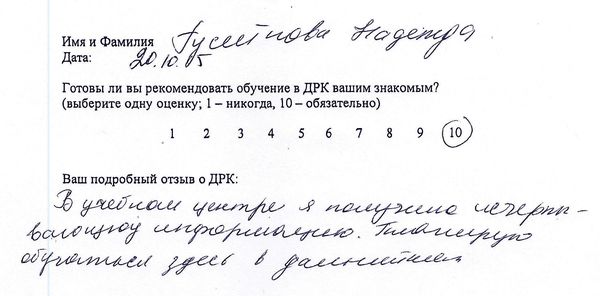 Имя и Фамилия Надежда
Дата: 20.10.15
Готовы ли вы рекомендовать обучение в ДРК вашим знакомым?
(выберите одну оценку; 1 – никогда, 10 – обязательно)
1 2 3 4 5 6 7 8 9 10
Ваш подробный отзыв о ДРК:
В учебном центре я получила исчерпы-
вающую информацию. Планирую
обучаться здесь в дальнейшем